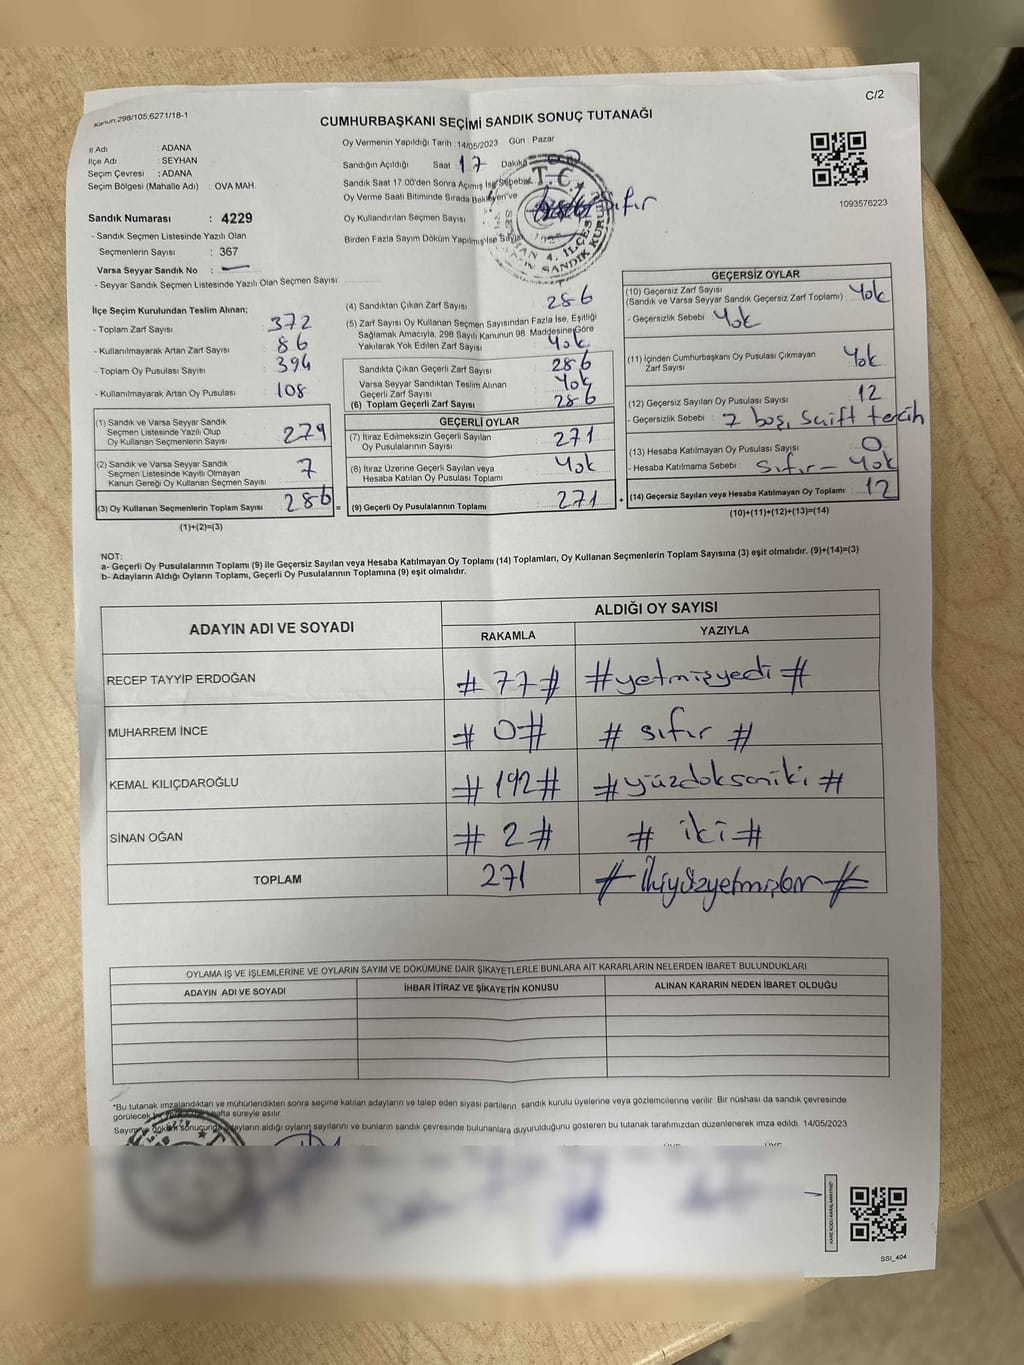 Kanun 298/105,6271/18-1
C/2
CUMHURBAŞKANI SEÇİMİ SANDIK SONUÇ TUTANAĞI
İl Adı : ADANA
İlçe Adı : SEYHAN
Seçim Çevresi : ADANA
Seçim Bölgesi (Mahalle Adı) : OVA MAH.
Sandık Numarası : 4229
- Sandık Seçmen Listesinde Yazılı Olan
Seçmenlerin Sayısı : 367
Varsa Seyyar Sandık No : —
- Seyyar Sandık Seçmen Listesinde Yazılı Olan Seçmen Sayısı :
Oy Vermenin Yapıldığı Tarih : 14/05/2023 Gün : Pazar
Sandığın Açıldığı Saat 17 Dakika 00
Sandık Saat 17:00'den Sonra Açımış İse Sebebi
Oy Verme Saati Bitiminde Sırada Bekleyen ve
Oy Kullandırılan Seçmen Sayısı sıfır
Birden Fazla Sayım Döküm Yapılmış İse Sayısı
T.C.
SEYHAN 4. İLÇE
SANDIK KURULU
1093576223
İlçe Seçim Kurulundan Teslim Alınan;
- Toplam Zarf Sayısı 372
- Kullanılmayarak Artan Zarf Sayısı 86
- Toplam Oy Pusulası Sayısı 394
- Kullanılmayarak Artan Oy Pusulası 108
(1) Sandık ve Varsa Seyyar Sandık
Seçmen Listesinde Yazılı Olup
Oy Kullanan Seçmenlerin Sayısı : 279
(2) Sandık ve Varsa Seyyar Sandık
Seçmen Listesinde Kayıtlı Olmayan
Kanun Gereği Oy Kullanan Seçmen Sayısı : 7
(3) Oy Kullanan Seçmenlerin Toplam Sayısı : 286
(1)+(2)=(3)
(4) Sandıktan Çıkan Zarf Sayısı : 286
(5) Zarf Sayısı Oy Kullanan Seçmen Sayısından Fazla İse, Eşitliği
Sağlamak Amacıyla, 298 Sayılı Kanunun 98. Maddesine Göre
Yakılarak Yok Edilen Zarf Sayısı : Yok
Sandıkta Çıkan Geçerli Zarf Sayısı : 286
Varsa Seyyar Sandıktan Teslim Alınan
Geçerli Zarf Sayısı : Yok
(6) Toplam Geçerli Zarf Sayısı : 286
GEÇERLİ OYLAR
(7) İtiraz Edilmeksizin Geçerli Sayılan
Oy Pusulalarının Sayısı : 271
(8) İtiraz Üzerine Geçerli Sayılan veya
Hesaba Katılan Oy Pusulası Toplamı : Yok
= (9) Geçerli Oy Pusulalarının Toplamı : 271 +
GEÇERSİZ OYLAR
(10) Geçersiz Zarf Sayısı
(Sandık ve Varsa Seyyar Sandık Geçersiz Zarf Toplamı) : Yok
- Geçersizlik Sebebi : Yok
(11) İçinden Cumhurbaşkanı Oy Pusulası Çıkmayan
Zarf Sayısı : Yok
(12) Geçersiz Sayılan Oy Pusulası Sayısı : 12
- Geçersizlik Sebebi : 7 boş, 5 çift tercih
(13) Hesaba Katılmayan Oy Pusulası Sayısı : 0
- Hesaba Katılmama Sebebi : sıfır - Yok
(14) Geçersiz Sayılan veya Hesaba Katılmayan Oy Toplamı : 12
(10)+(11)+(12)+(13)=(14)
NOT:
a- Geçerli Oy Pusulalarının Toplamı (9) ile Geçersiz Sayılan veya Hesaba Katılmayan Oy Toplamı (14) Toplamları, Oy Kullanan Seçmenlerin Toplam Sayısına (3) eşit olmalıdır. (9)+(14)=(3)
b- Adayların Aldığı Oyların Toplamı, Geçerli Oy Pusulalarının Toplamına (9) eşit olmalıdır.
ADAYIN ADI VE SOYADI
ALDIĞI OY SAYISI
RAKAMLA YAZIYLA
RECEP TAYYİP ERDOĞAN # 77# #yetmişyedi #
MUHARREM İNCE # 0# # sıfır #
KEMAL KILIÇDAROĞLU #192# #yüzdoksaniki #
SİNAN OĞAN # 2# # iki #
TOPLAM 271 # İkiyüzyetmişbir #
OYLAMA İŞ VE İŞLEMLERİNE VE OYLARIN SAYIM VE DÖKÜMÜNE DAİR ŞİKAYETLERLE BUNLARA AİT KARARLARIN NELERDEN İBARET BULUNDUKLARI
ADAYIN ADI VE SOYADI İHBAR İTİRAZ VE ŞİKAYETİN KONUSU ALINAN KARARIN NEDEN İBARET OLDUĞU
*Bu tutanak imzalandıktan ve mühürlendikten sonra seçime katılan adayların ve talep eden siyasi partilerin sandık kurulu üyelerine veya gözlemcilerine verilir. Bir nüshası da sandık çevresinde
görülecek bir hafta süreyle asılır.
Sayım döküm sonucunda adayların aldığı oyların sayılarını ve bunların sandık çevresinde bulunanlara duyurulduğunu gösteren bu tutanak tarafımızdan düzenlenerek imza edildi. 14/05/2023
KARE KODU KARALAMAYINIZ!
SSI_404